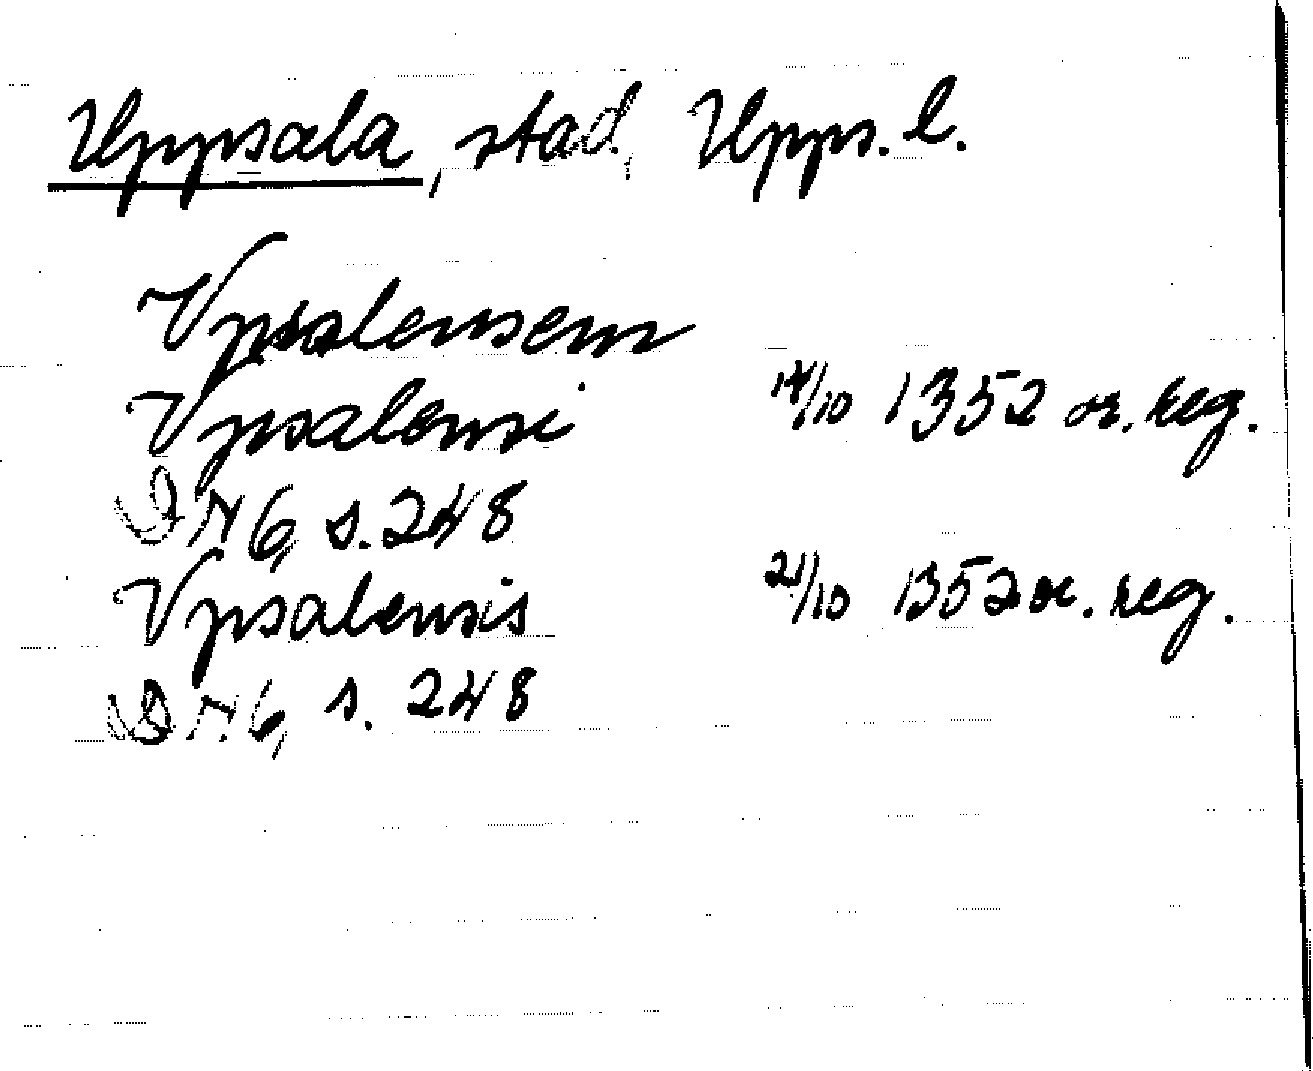 Uppsala, stad, Upps. l.
Vpsalensem
Vpsalensi 14/10 1352 or. reg.
DN 6, s. 248
Vpsalensis 21/10 1352 or. reg.
DN 6, s. 248